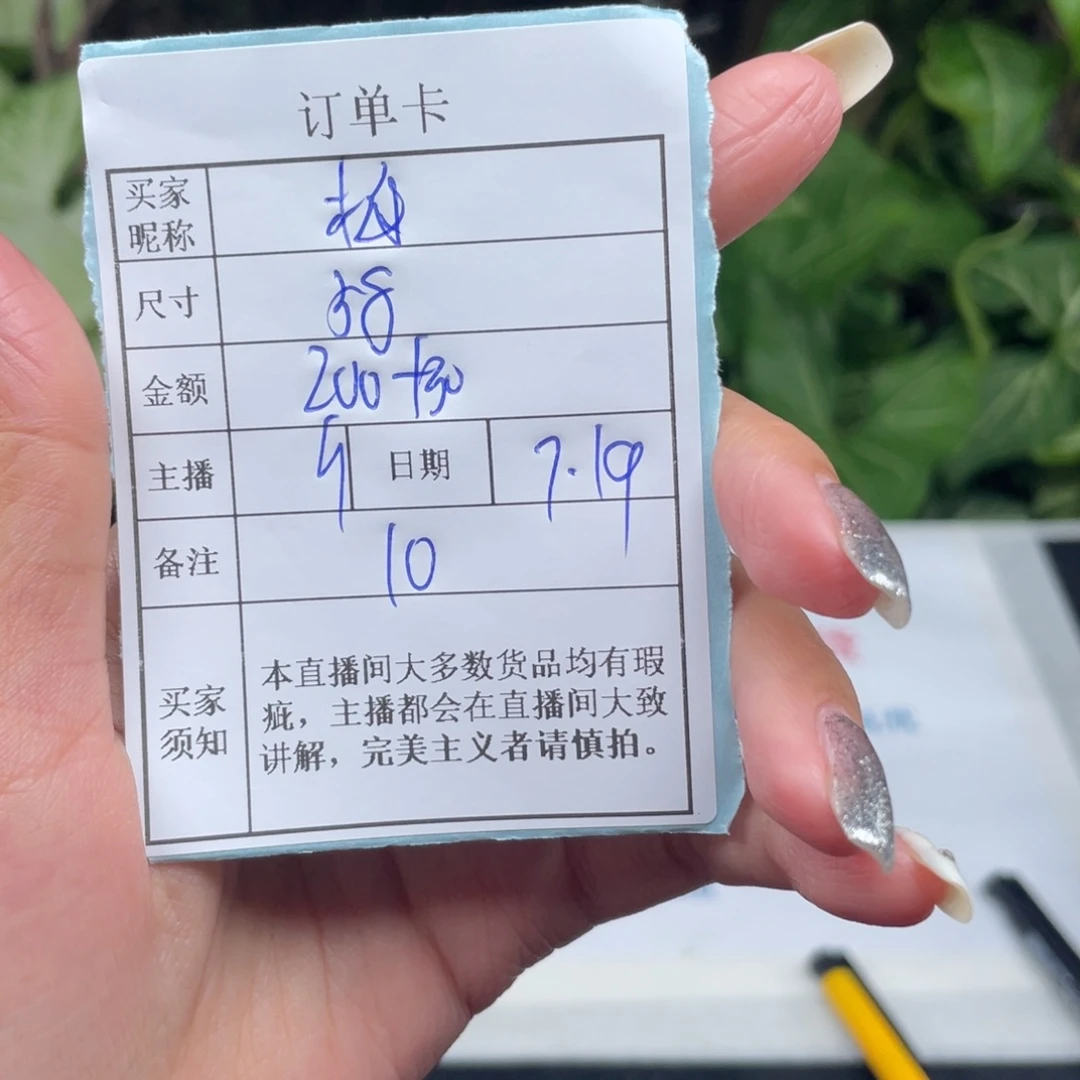 订单卡
买家
昵称
尺寸
金额 200+30
主播 日期 7.19
备注 10
买家
须知
本直播间大多数货品均有瑕
疵，主播都会在直播间大致
讲解，完美主义者请慎拍。